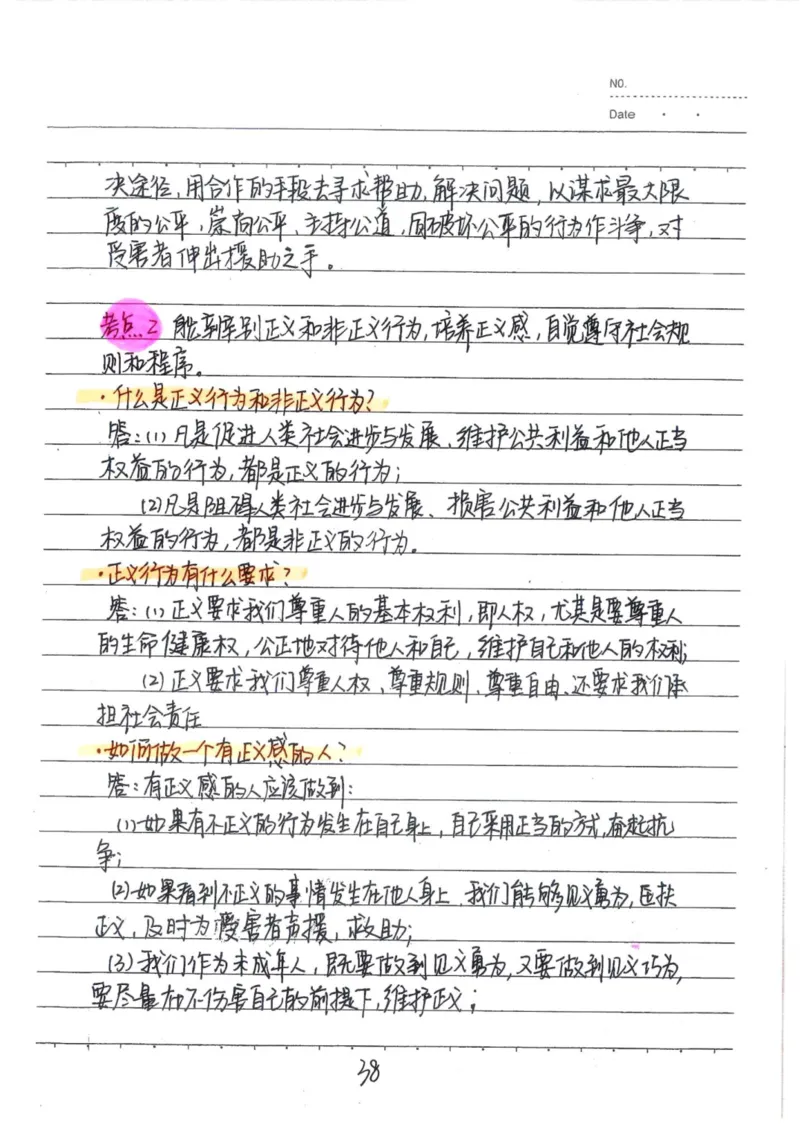 NO.
Date
决途径,用合作的手段去寻求帮助,解决问题,以谋求最大限
度的公平,崇尚公平、主持公道,同破坏公平的行为作斗争,对
受害者伸出援助之手。
考点2 能够辨别正义和非正义行为,培养正义感,自觉遵守社会规
则和程序。
·什么是正义行为和非正义行为?
答:(1)凡是促进人类社会进步与发展、维护公共利益和他人正当
权益的行为,都是正义的行为;
(2)凡是阻碍人类社会进步与发展、损害公共利益和他人正当
权益的行为,都是非正义的行为。
·正义行为有什么要求?
答:(1)正义要求我们尊重人的基本权利,即人权,尤其是要尊重人
的生命健康权,公正地对待他人和自己,维护自己和他人的权利;
(2)正义要求我们尊重人权、尊重规则、尊重自由、还要求我们承
担社会责任
·如何做一个有正义感的人?
答:有正义感的人应该做到:
(1)如果有不正义的行为发生在自己身上,自己采用正当的方式,奋起抗
争;
(2)如果看到不正义的事情发生在他人身上,我们能够见义勇为,匡扶
正义,及时为受害者声援,救助;
(3)我们作为未成年人,既要做到见义勇为,又要做到见义巧为,
要尽量在不伤害自己的前提下,维护正义;
38